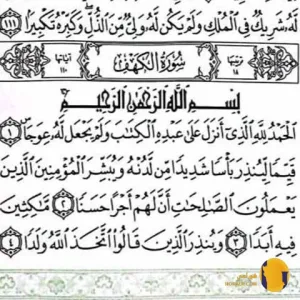 لَّهُ شَرِيكٌ فِي الْمُلْكِ وَلَمْ يَكُن لَّهُ وَلِيٌّ مِّنَ الذُّلِّ وَكَبِّرْهُ تَكْبِيرًا ١١١
ترتيبها ١٨ سُورَةُ الْكَهْفِ آياتها ١١٠
بِسْمِ اللَّهِ الرَّحْمَٰنِ الرَّحِيمِ
الْحَمْدُ لِلَّهِ الَّذِي أَنزَلَ عَلَىٰ عَبْدِهِ الْكِتَابَ وَلَمْ يَجْعَل لَّهُ عِوَجًا ١
قَيِّمًا لِّيُنذِرَ بَأْسًا شَدِيدًا مِّن لَّدُنْهُ وَيُبَشِّرَ الْمُؤْمِنِينَ الَّذِينَ
يَعْمَلُونَ الصَّالِحَاتِ أَنَّ لَهُمْ أَجْرًا حَسَنًا ٢ مَّاكِثِينَ
فِيهِ أَبَدًا ٣ وَيُنذِرَ الَّذِينَ قَالُوا اتَّخَذَ اللَّهُ وَلَدًا ٤